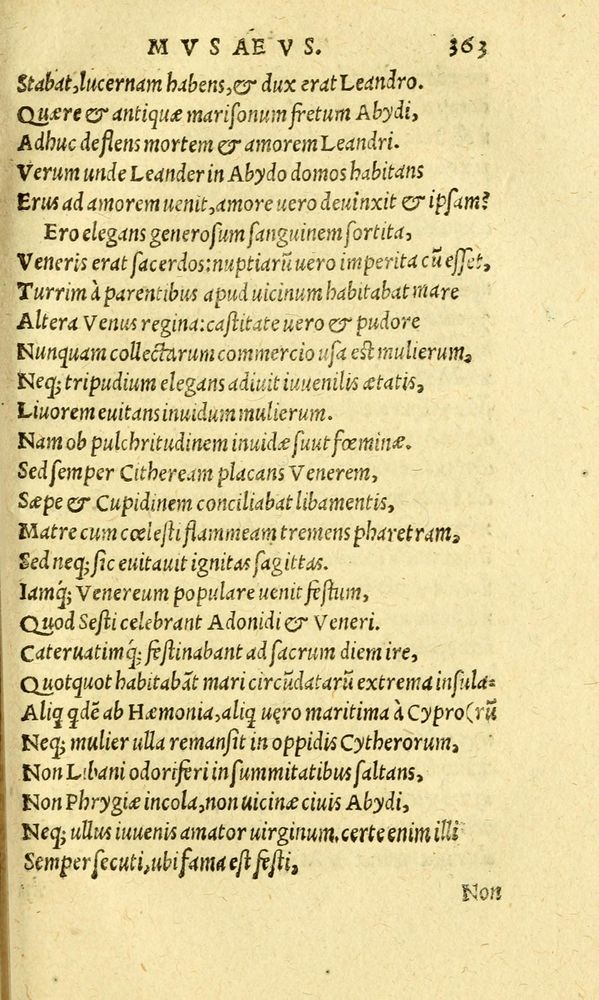 MVSAEVS. 363
Stabat, lucernam habens, & dux erat Leandro.
Quære & antiquæ mariſonum fretum Abydi,
Adhuc deflens mortem & amorem Leandri.
Verum unde Leander in Abydo domos habitans
Erus ad amorem uenit, amore uero deuinxit & ipſam?
Ero elegans generoſum ſanguinem ſortita,
Veneris erat ſacerdos: nuptiarũ uero imperita cũ eſſet,
Turrim à parentibus apud uicinum habitabat mare
Altera Venus regina: caſtitate uero & pudore
Nunquam collectarum commercio uſa eſt mulierum,
Neq; tripudium elegans adiuit iuuenilis ætatis,
Liuorem euitans inuidum mulierum.
Nam ob pulchritudinem inuidæ ſuut fœminæ.
Sed ſemper Citheream placans Venerem,
Sæpe & Cupidinem conciliabat libamentis,
Matre cum cœleſti flammeam tremens pharetram,
Sed neq; ſic euitauit ignitas ſagittas.
Iamq́; Venereum populare uenit feſtum,
Quod Seſti celebrant Adonidi & Veneri.
Cateruatimq́; feſtinabant ad ſacrum diem ire,
Quotquot habitabãt mari circũdatarũ extrema inſula-
Aliq qdẽ ab Hæmonia, aliq uęro maritima à Cypro (rũ
Neq; mulier ulla remanſit in oppidis Cytherorum,
Non Libani odoriferi in ſummitatibus ſaltans,
Non Phrygiæ incola, non uicinæ ciuis Abydi,
Neq; ullus iuuenis amator uirginum. certe enim illi
Semper ſecuti, ubi fama eſt feſti,
Non